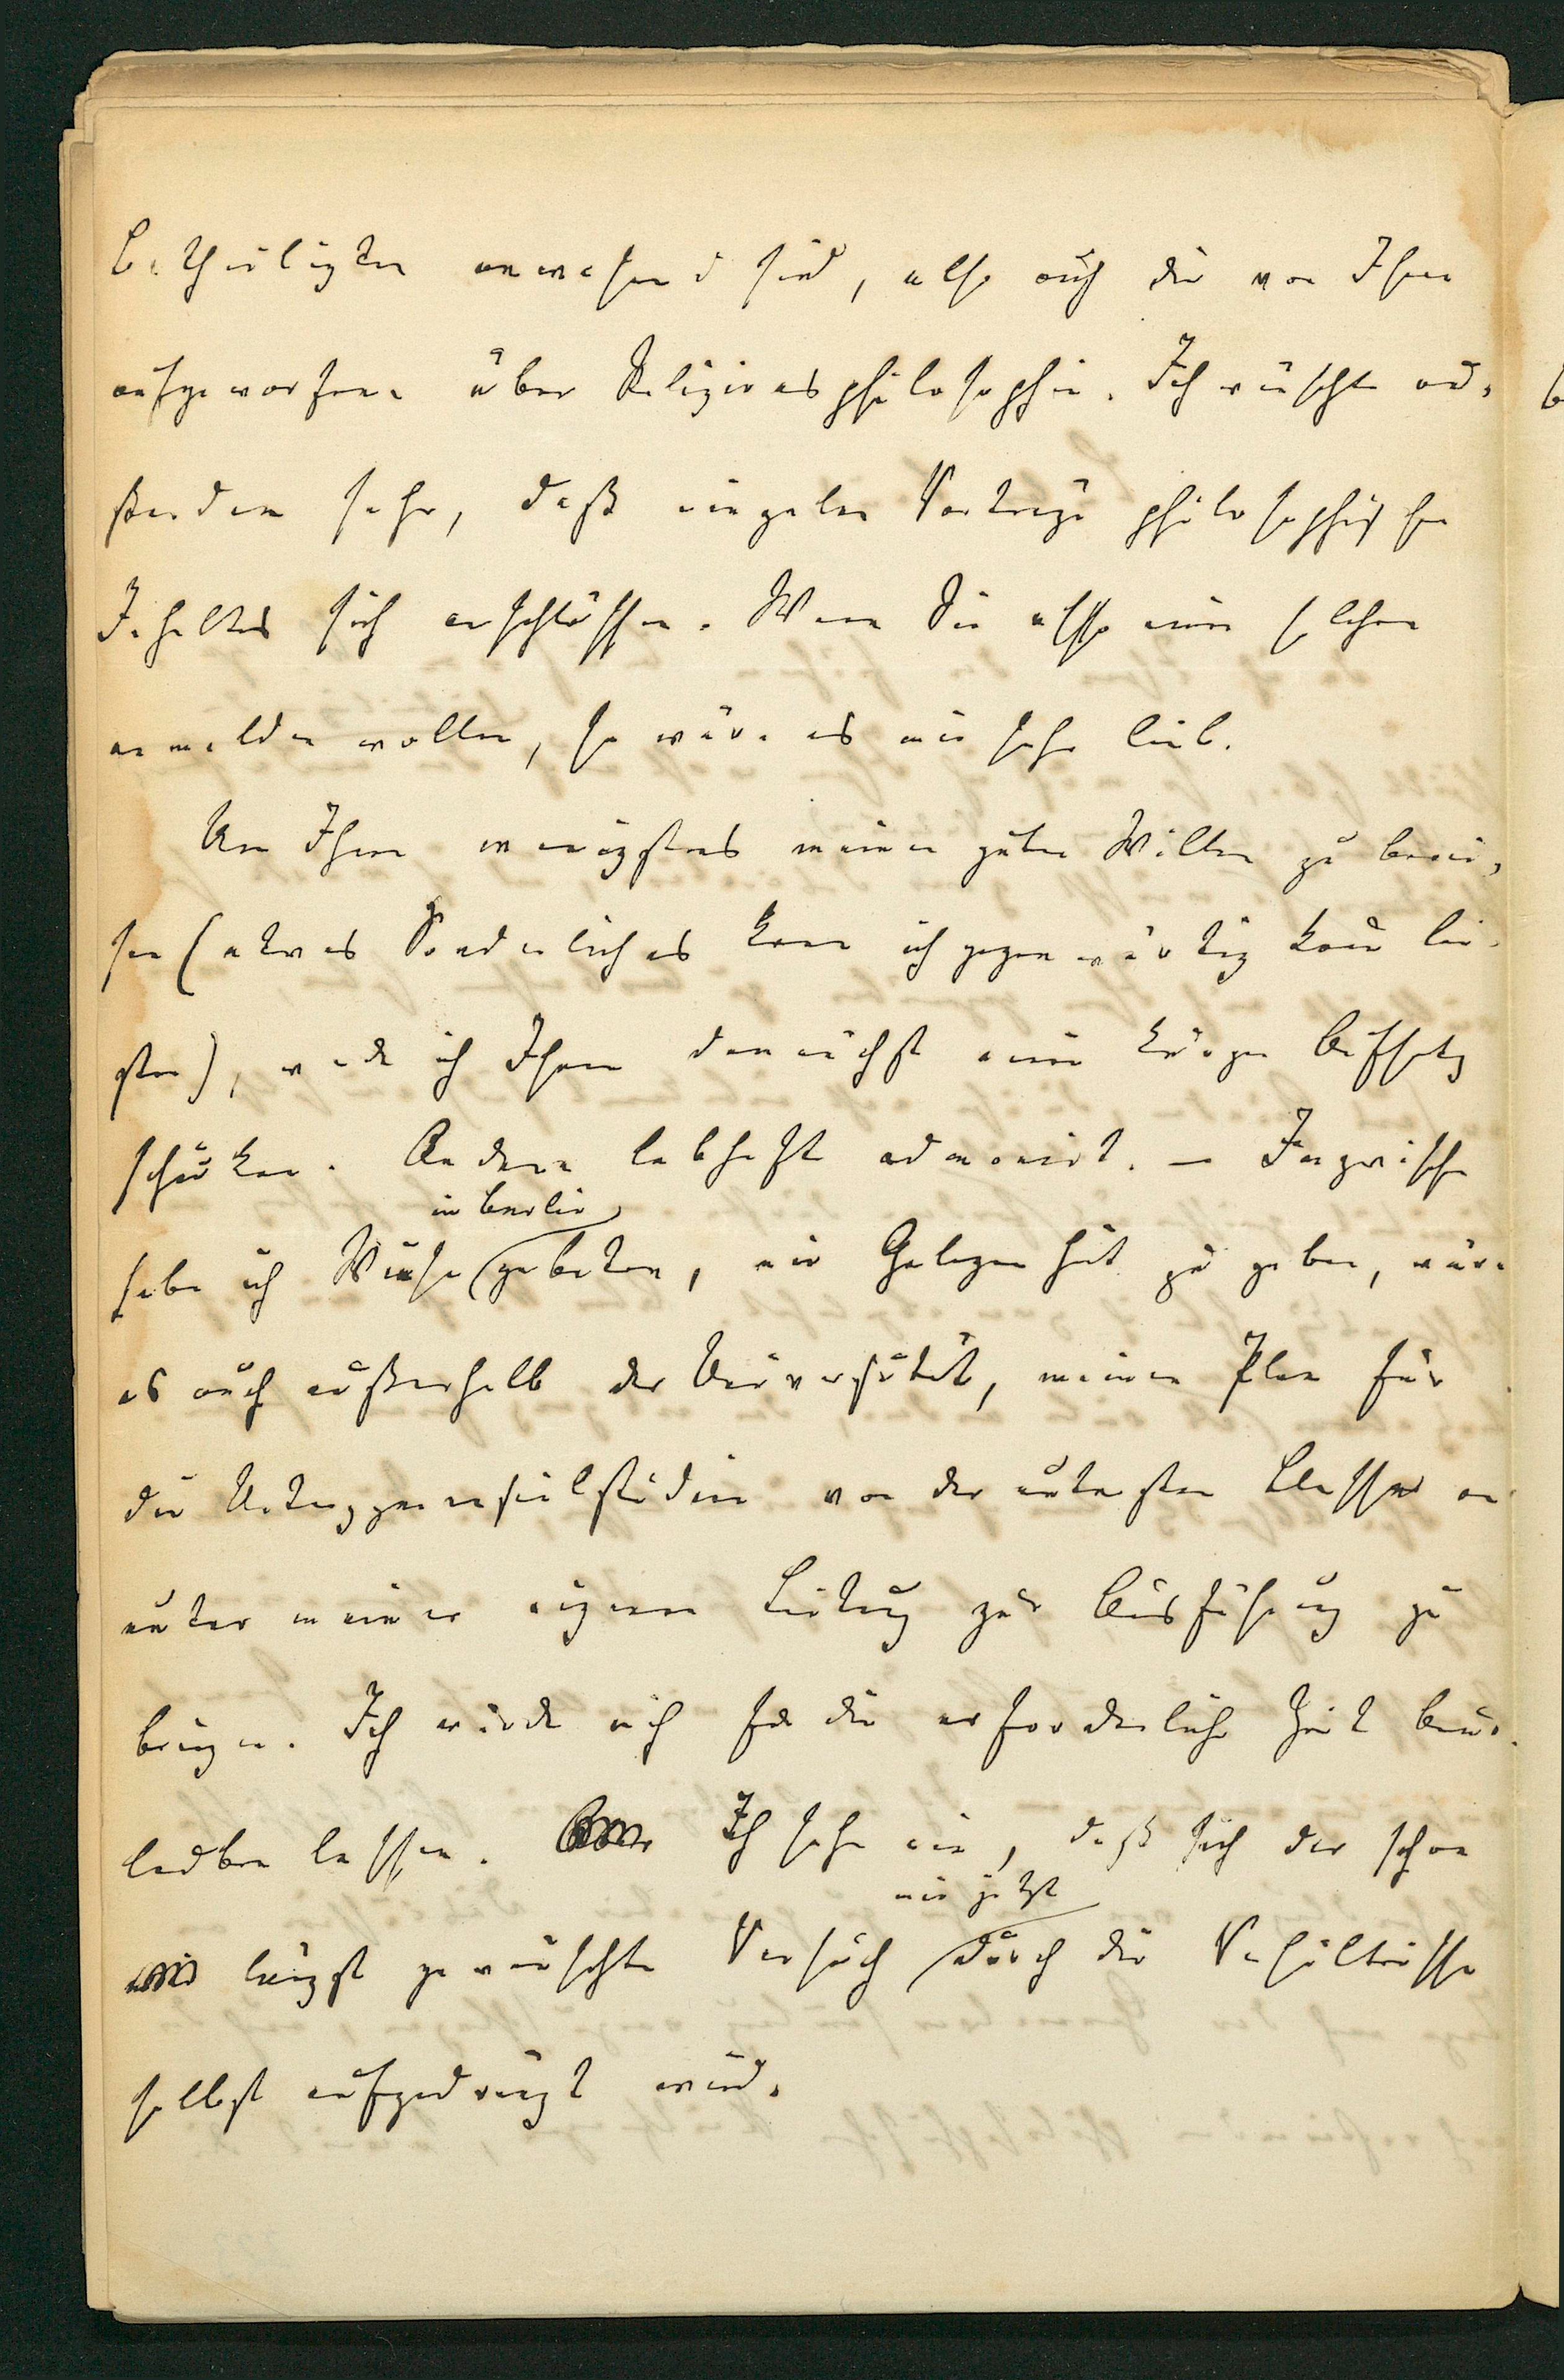 betheiligten anwesend sind, also auch die von Ihnen
aufgeworfene über Religionsphilosophie. Ich wünschte au-
ßerdem sehr, daß einzelne Vorträge philosophischen
Inhaltes sich anschlössen. Wenn Sie also einen solchen
anmelden wollten, so wäre es mir sehr lieb.
Um Ihnen wenigstens meinen guten Willen zu bewei-
sen (etwas Sonderliches kann ich gegenwärtig kaum lei-
sten), werde ich Ihnen demnächst einen kurzen Aufsatz
schicken. Andere lebhaft admonirt. — Inzwischen
in Berlin
habe ich Wiese gebeten, mir Gelegenheit zu geben, wäre
es auch außerhalb der Universität, meinen Plan für
die Untergymnasialstudien von der untersten Classe an
unter meiner eigenen Leitung zur Ausführung zu
bringen. Ich würde mich für die erforderliche Zeit beur-
lauben lassen. Ich sehe ein, daß sich der schon
mir jetzt
längst gewünschte Versuch durch die Verhältnisse
selbst aufgedrängt wird.